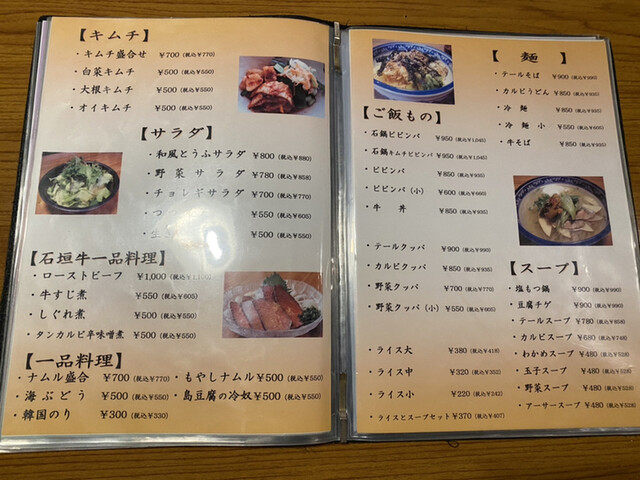 【キムチ】
・キムチ盛合せ ¥700(税込¥770)
・白菜キムチ ¥500(税込¥550)
・大根キムチ ¥500(税込¥550)
・オイキムチ ¥500(税込¥550)
【サラダ】
・和風とうふサラダ ¥800(税込¥880)
・野菜サラダ ¥780(税込¥858)
・チョレギサラダ ¥700(税込¥770)
・つ ¥550(税込¥605)
・生 ¥500(税込¥550)
【石垣牛一品料理】
・ローストビーフ ¥1,000(税込¥1,100)
・牛すじ煮 ¥550(税込¥605)
・しぐれ煮 ¥500(税込¥550)
・タンカルビ辛味噌煮 ¥500(税込¥550)
【一品料理】
・ナムル盛合 ¥700(税込¥770) ・もやしナムル¥500(税込¥550)
・海ぶどう ¥500(税込¥550) ・島豆腐の冷奴¥500(税込¥550)
・韓国のり ¥300(税込¥330)
【ご飯もの】
・石鍋ビビンバ ¥950(税込¥1,045)
・石鍋キムチビビンバ ¥950(税込¥1,045)
・ビビンバ ¥850(税込¥935)
・ビビンバ(小) ¥600(税込¥660)
・牛丼 ¥850(税込¥935)
・テールクッパ ¥900(税込¥990)
・カルビクッパ ¥850(税込¥935)
・野菜クッパ ¥700(税込¥770)
・野菜クッパ(小) ¥550(税込¥605)
・ライス大 ¥380(税込¥418)
・ライス中 ¥320(税込¥352)
・ライス小 ¥220(税込¥242)
・ライスとスープセット¥370(税込¥407)
【麺】
・テールそば ¥900(税込¥990)
・カルビうどん ¥850(税込¥935)
・冷麺 ¥850(税込¥935)
・冷麺小 ¥550(税込¥605)
・牛そば ¥850(税込¥935)
【スープ】
・塩もつ鍋 ¥900(税込¥990)
・豆腐チゲ ¥900(税込¥990)
・テールスープ ¥780(税込¥858)
・カルビスープ ¥680(税込¥748)
・わかめスープ ¥480(税込¥528)
・玉子スープ ¥480(税込¥528)
・野菜スープ ¥480(税込¥528)
・アーサースープ ¥480(税込¥528)